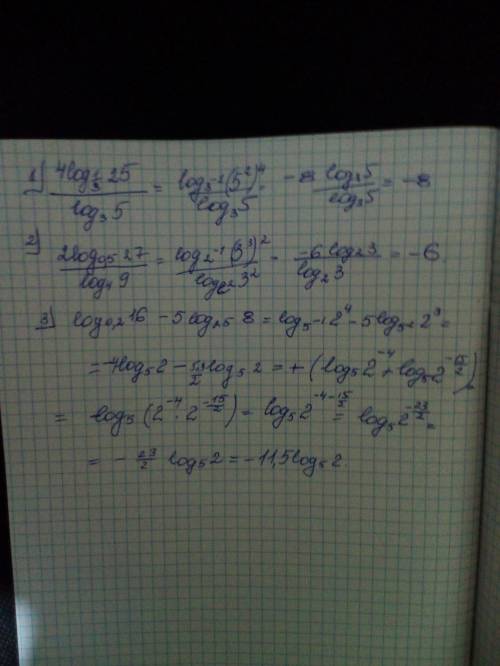 1) 4log_{1/3} 25 / log_3 5 = log_{3^{-1}} (5^2)^4 / log_3 5 = -8 log_3 5 / log_3 5 = -8
2) 2log_{0,5} 27 / log_4 9 = log_{2^{-1}} (3^3)^2 / log_{2^2} 3^2 = -6 log_2 3 / log_2 3 = -6
3) log_{0,2} 16 - 5 log_{25} 8 = log_{5^{-1}} 2^4 - 5 log_{5^2} 2^3 =
= -4 log_5 2 - 5·3/2 log_5 2 = + (log_5 2^{-4} + log_5 2^{-15/2}) =
= log_5 (2^{-4} · 2^{-15/2}) = log_5 2^{-4-15/2} = log_5 2^{-23/2} =
= - 23/2 log_5 2 = -11,5 log_5 2.